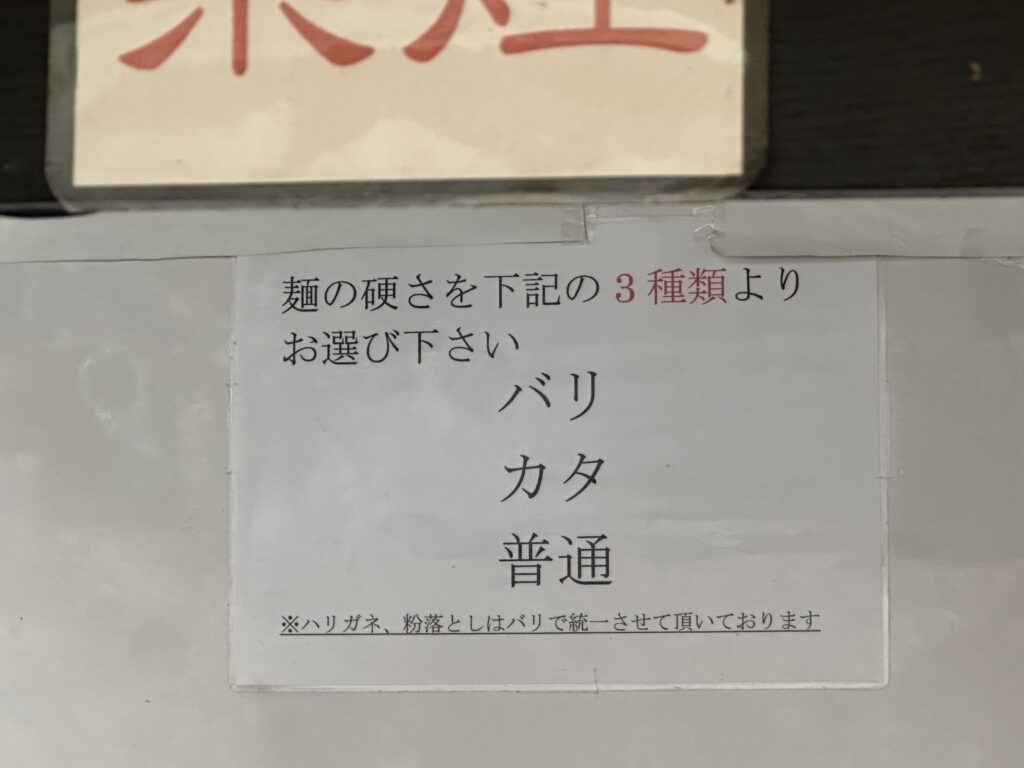 麺の硬さを下記の3種類より
お選び下さい
バリ
カタ
普通
※ハリガネ、粉落としはバリで統一させて頂いております